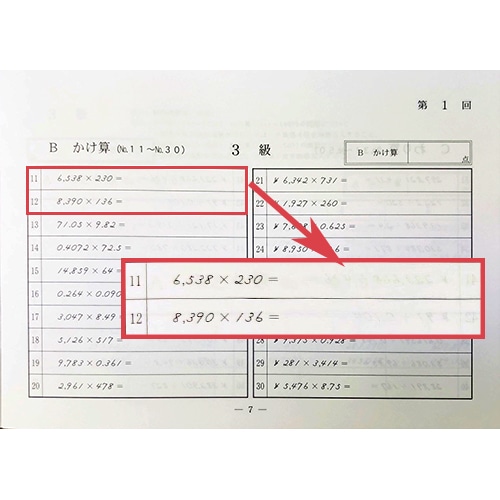 第 1 回
B かけ算 (№11〜№30)
3 級
B かけ算
点
11 6,538 × 230 =
12 8,390 × 136 =
13 71.05 × 9.82 =
14 0.4072 × 72.5 =
15 14,859 × 64 =
16 0.264 × 0.090
17 3,047 × 8.49
18 5,126 × 517 =
19 9,783 × 0.361 =
20 2,961 × 478 =
21 ¥ 6,342 × 731 =
22 ¥ 1,927 × 260 =
23 0.625 =
24 ¥ 8,950
11 6,538 × 230 =
12 8,390 × 136 =
28 ¥ 9,315 × 0.928 =
29 ¥ 281 × 3,414 =
30 ¥ 5,476 × 8.75 =
— 7 —